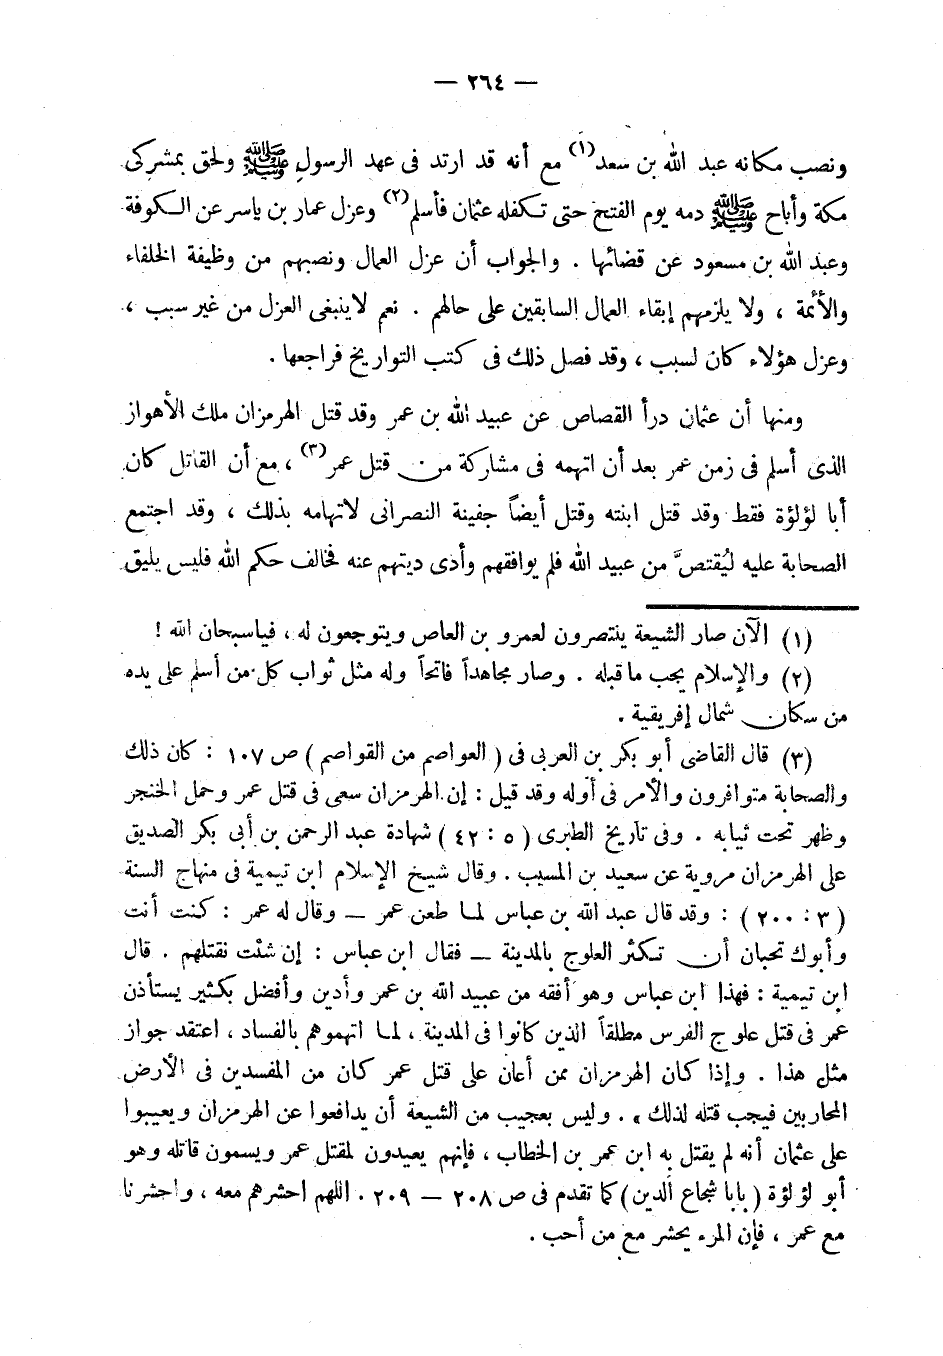 — ٢٦٤ —
ونصب مكانه عبد الله بن سعد(١) مع أنه قد ارتد فى عهد الرسول ﷺ ولحق بمشركى
مكة وأباح ﷺ دمه يوم الفتح حتى تكفله عثمان فأسلم(٢) وعزل عمار بن ياسر عن الكوفة
وعبد الله بن مسعود عن قضائها . والجواب أن عزل العمال ونصبهم من وظيفة الخلفاء
والأئمة ، ولا يلزمهم إبقاء العمال السابقين على حالهم . نعم لاينبغى العزل من غير سبب ،
وعزل هؤلاء كان لسبب ، وقد فصل ذلك فى كتب التواريخ فراجعها .
ومنها أن عثمان درأ القصاص عن عبيد الله بن عمر وقد قتل الهرمزان ملك الأهواز
الذى أسلم فى زمن عمر بعد أن اتهمه فى مشاركة من قتل عمر(٣) ، مع أن القاتل كان
أبا لؤلؤة فقط وقد قتل ابنته وقتل أيضاً جفينة النصرانى لاتهامه بذلك ، وقد اجتمع
الصحابة عليه ليُقتصَّ من عبيد الله فلم يوافقهم وأدى ديتهم عنه فخالف حكم الله فليس يليق
(١) الآن صار الشيعة ينتصرون لعمرو بن العاص ويتوجعون له ، فياسبحان الله !
(٢) والإسلام يجب ماقبله . وصار مجاهداً فاتحاً وله مثل ثواب كل من أسلم على يده
من سكان شمال إفريقية .
(٣) قال القاضى أبو بكر بن العربى فى ( العواصم من القواصم ) ص ١٠٧ : كان ذلك
والصحابة متوافرون والأمر فى أوله وقد قيل : إن الهرمزان سعى فى قتل عمر وحمل الخنجر
وظهر تحت ثيابه . وفى تاريخ الطبرى ( ٥ : ٤٢ ) شهادة عبد الرحمن بن أبى بكر الصديق
على الهرمزان مروية عن سعيد بن المسيب . وقال شيخ الإسلام ابن تيمية فى منهاج السنة
( ٣ : ٢٠٠ ) : وقد قال عبد الله بن عباس لما طعن عمر — وقال له عمر : كنت أنت
وأبوك تحبان أن تكثر العلوج بالمدينة — فقال ابن عباس : إن شئت نقتلهم . قال
ابن تيمية : فهذا ابن عباس وهو أفقه من عبيد الله بن عمر وأدين وأفضل بكثير يستأذن
عمر فى قتل علوج الفرس مطلقاً الذين كانوا فى المدينة ، لما اتهموهم بالفساد ، اعتقد جواز
مثل هذا . وإذا كان الهرمزان ممن أعان على قتل عمر كان من المفسدين فى الأرض
المحاربين فيجب قتله لذلك » . وليس بعجيب من الشيعة أن يدافعوا عن الهرمزان ويعيبوا
على عثمان أنه لم يقتل به ابن عمر بن الخطاب ، فإنهم يعيدون لمقتل عمر ويسمون قاتله وهو
أبو لؤلؤة ( بابا شجاع الدين) كما تقدم فى ص ٢٠٨ — ٢٠٩ . اللهم احشرهم معه ، واحشرنا
مع عمر ، فإن المرء يحشر مع من أحب .